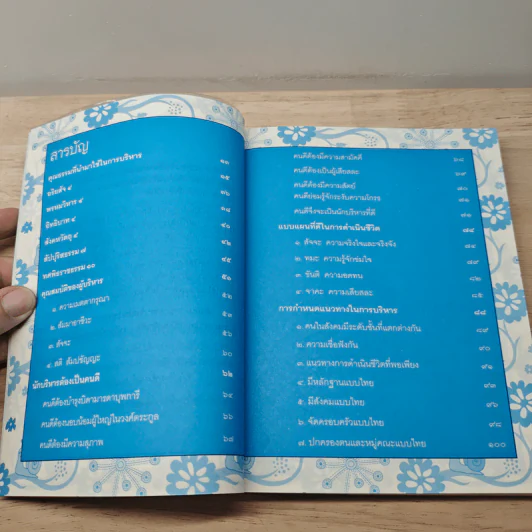 สารบัญ
คุณธรรมที่นำมาใช้ในการบริหาร ๑๓
อริยสัจ ๔ ๑๕
พรหมวิหาร ๔
อิทธิบาท ๔
สังคหวัตถุ ๔ ๔๐
สัปปุริสธรรม ๗ ๔๒
ทศพิธราชธรรม ๑๐ ๔๕
คุณสมบัติของผู้บริหาร
๑. ความเมตตากรุณา
๒. สัมมาอาชีวะ
๓. สัจจะ ๕๖
๔. สติ สัมปชัญญะ ๖๐
นักบริหารต้องเป็นคนดี ๖๒
คนดีต้องบำรุงบิดามารดาบุพการี ๖๔
คนดีต้องนอบน้อมผู้ใหญ่ในวงศ์ตระกูล ๖๖
คนดีต้องมีความสุภาพ ๖๗
คนดีต้องมีความสามัคคี ๖๘
คนดีต้องเป็นผู้เสียสละ ๖๙
คนดีต้องมีความสัตย์ ๗๐
คนดีย่อมรู้จักระงับความโกรธ ๗๑
คนดีจึงจะเป็นนักบริหารที่ดี
แบบแผนที่ดีในการดำเนินชีวิต ๗๔
๑. สัจจะ ความจริงใจและจริงจัง
๒. ทมะ ความรู้จักข่มใจ ๗๙
๓. ขันติ ความอดทน ๘๒
๔. จาคะ ความเสียสละ ๘๕
การกำหนดแนวทางในการบริหาร ๘๘
๑. คนในสังคมมีระดับชั้นที่แตกต่างกัน ๘๙
๒. ความเชื่อฟังกัน ๙๐
๓. แนวทางการดำเนินชีวิตที่พอเพียง
๔. มีหลักฐานแบบไทย ๙๓
๕. มีสังคมแบบไทย ๙๖
๖. จัดครอบครัวแบบไทย ๙๘
๗. ปกครองตนและหมู่คณะแบบไทย ๑๐๐